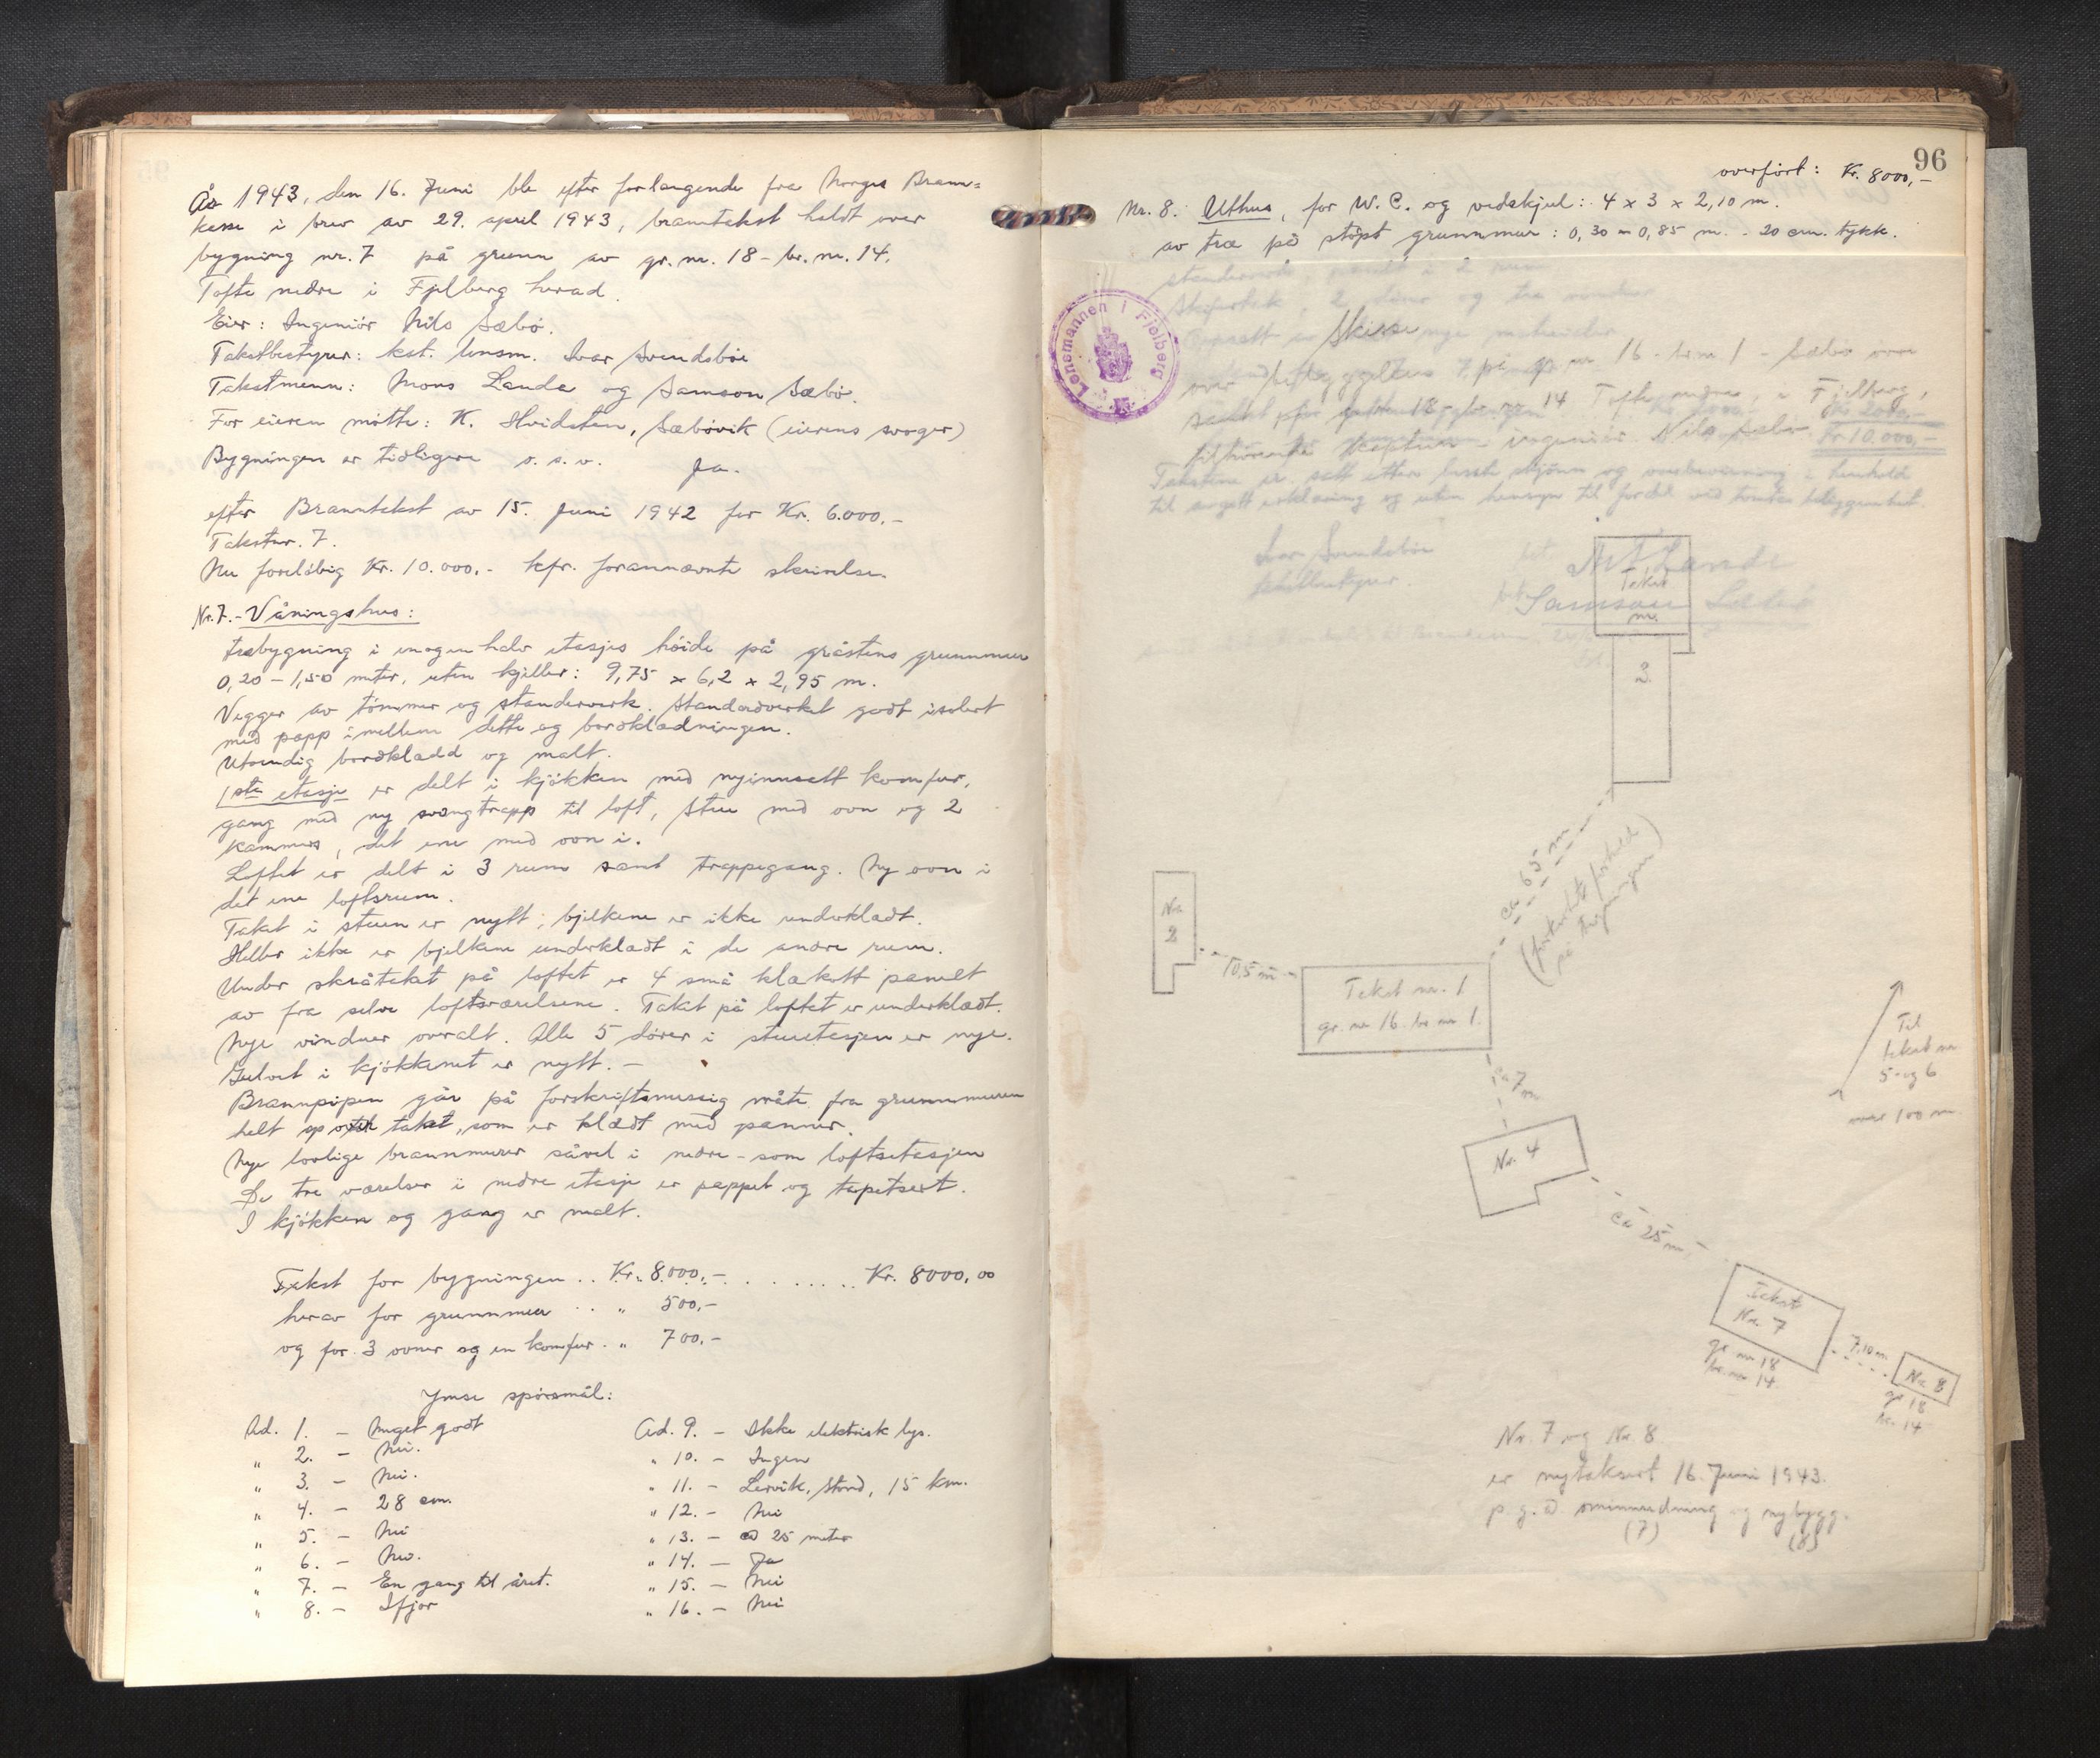 År 1943, den 16. Juni ble efter forlangende fra Norges Brann=
kasse i brev av 29. april 1943, branntakst holdt over
bygning nr. 7 på grunn av gr. nr. 18 - br. nr. 14.
Tofte nedre i Fjelberg herad.
Eier: Ingeniör Nils Sæbö.
Takstbestyrer: kst. lensm. Ivar Svendsböe
Takstmenn: Mons Landa og Samson Sæbö.
For eieren mötte: K. Hvidsten, Sæbövik (eierens svoger)
Bygningen er tidligere o. s. v. Ja.
efter Branntakst av 15. Juni 1942 for Kr. 6.000.-
Takstnr. 7.
Nu forelöbig Kr. 10.000.- kfr. forannevnte skrivelse.
Nr. 7. - Våningshus:
Træbygning i en og en halv etasjes höide på gråstens grunnmur
0,20 - 1,50 meter, uten kjeller: 9,75 x 6,2 x 2,95 m.
Vegger av tömmer og standerverk. Standerverket godt isolert
med papp imellem dette og bordklædningen.
Utvendig bordklædd og malt.
1ste etasje er delt i kjökken med nyinnsatt komfur,
gang med ny svengtrapp til loft, Stue med ovn og 2
kammers, det ene med ovn i.
Loftet er delt i 3 rum samt trappegang. Ny ovn i
det ene loftsrum.
Taket i stuen er nytt; bjelkene er ikke underklædt.
Heller ikke er bjelkene underklædt i de andre rum.
Under skråtaket på loftet er 4 små klækott panelt
av fra selve loftsværelsene. Taket på loftet er underklædt.
Nye vinduer overalt. Alle 5 dörer i stueetasjen er nye.
Gulvet i kjökkenet er nytt. -
Brannpipen går på forskriftsmessig måte fra grunnmuren
helt op over taket, som er klædt med panner.
Nye lovlige brannmurer såvel i nedre - som loftsetasjen
De tre værelser i nedre etasje er pappet og tapetsert.
I kjökken og gang er malt.
Takst for bygningen .. Kr. 8.000,- ........ Kr. 8000,00
herav for grunnmur .. " 500,-
og for 3 ovner og en komfur. " 700.-
Ymse spörsmål:
Ad. 1. - Meget godt
" 2. - Nei.
" 3. - Nei.
" 4. - 28 cm.
" 5. - Nei
" 6. - Nei.
" 7. - En gang til året.
" 8. - Ifjor
Ad. 9. - Ikke elektrisk lys.
" 10. - Ingen
" 11. - Lervik, Stord, 15 km.
" 12. - Nei
" 13. - 25 meter
" 14. - Ja
" 15. - Nei
" 16. - Nei
96
overfört: Kr. 8000,-
Nr. 8. Uthus, for W. C. og vedskjul: 4 x 3 x 2,10 m.
av træ på stöpt grunnmur: 0,30 - 0,85 m. - 20 cm. tykk.
Lensmannen i Fjelberg
Skisse
over bebyggelsen på gr. nr. 16 - br. nr. 1 - Sæbö övre
samt gr. nr. 18 br. nr. 14 Tofte nedre, i Fjelberg,
tilhörende ingeniör Nils Sæbö.
Kr 10.000,-
Takstene er satt etter beste skjönn og overbevisning i henhold
til avgitt erklæring og uten hensyn til fordel ved tomtens beliggenhet.
Ivar Svendsböe
Takstbestyrer.
M. Landa
Samson Sæbö
Takst
nr.
3.
ca 65 m
(forkortet forhold
på tegningen)
Nr.
2
10,5 m
Takst nr. 1
gr. nr 16. br. nr 1.
ca 7 m
Til
takst nr
5 og 6
over 100 m.
Nr. 4
ca 25 m
Takst
Nr. 7
gr. nr 18
br. nr 14
7,10 m
Nr. 8
gr 18
br. 14
Nr. 7 og Nr. 8
er nytaksert 16. Juni 1943.
p. g. a ominnredning og nybygg.
(7) (8)